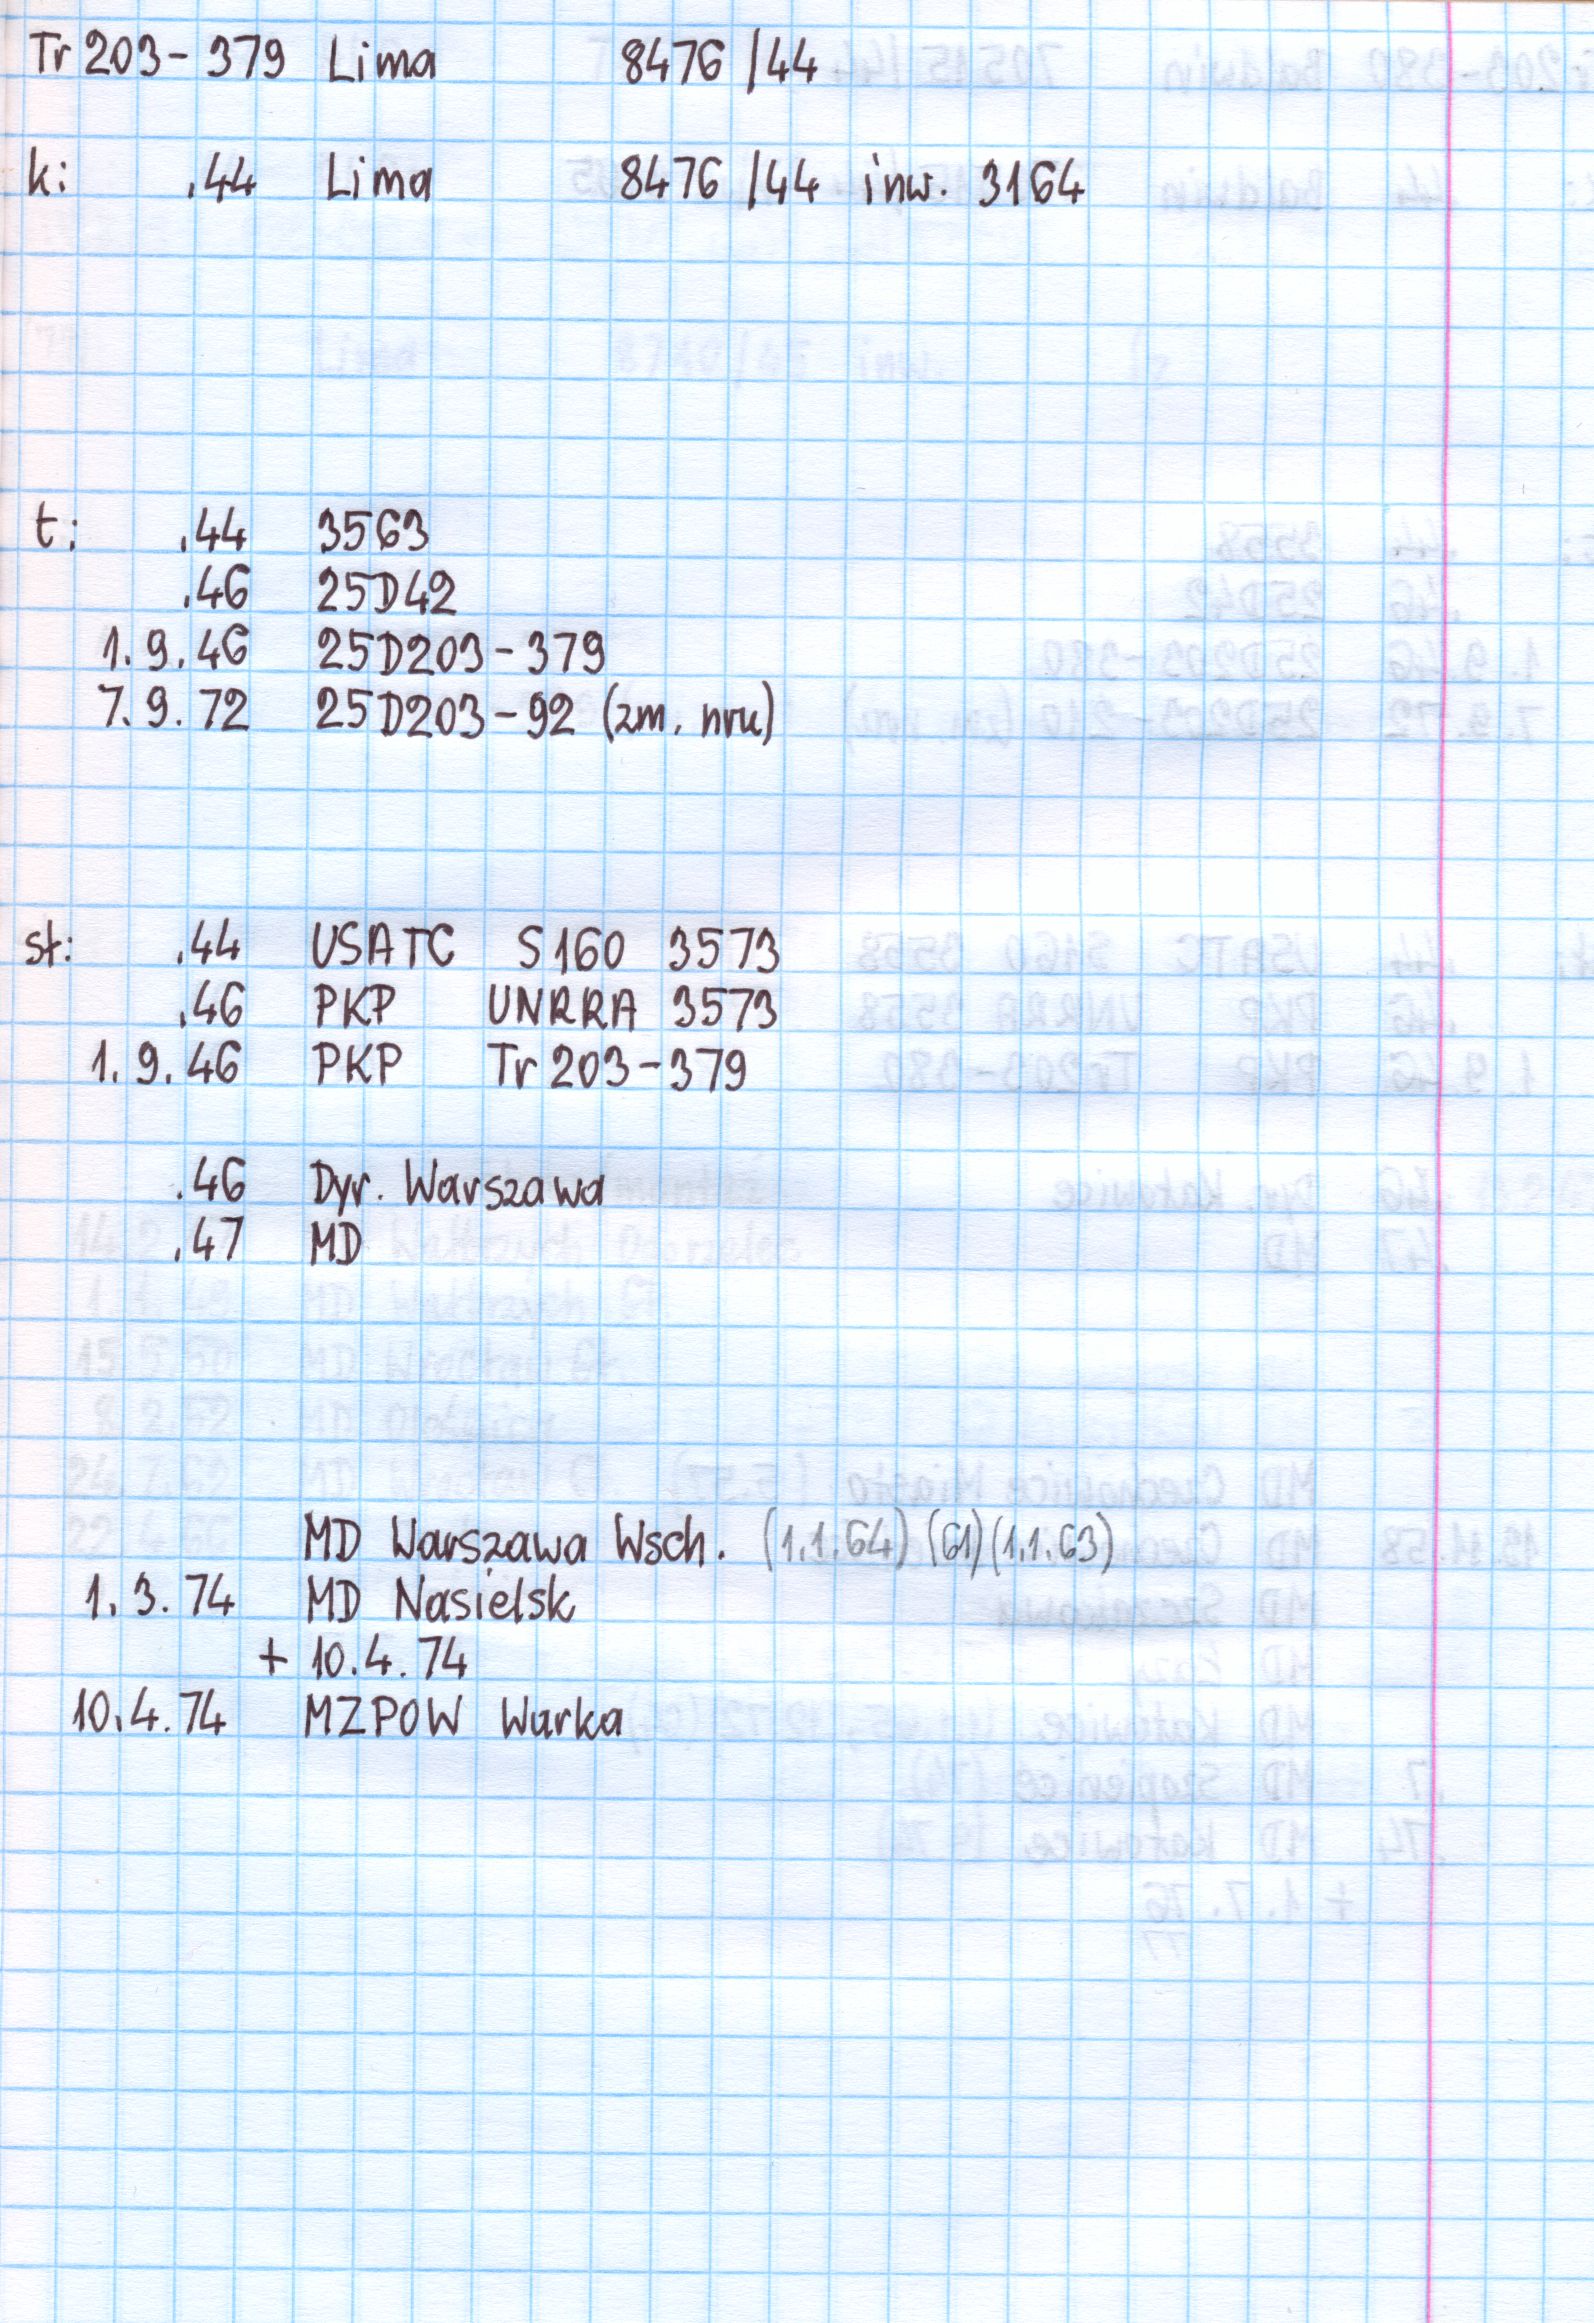 Tr 203-379 Lima 8476/44
k: .44 Lima 8476/44 inw. 3164
t: .44 3563
.46 25D42
1.9.46 25D203-379
7.9.72 25D203-92 (zm. nru)
st: .44 USATC S160 3573
.46 PKP UNRRA 3573
1.9.46 PKP Tr 203-379
.46 Dyr. Warszawa
.47 MD
MD Warszawa Wsch. (1.1.64) (61) (1.1.63)
1.3.74 MD Nasielsk
+ 10.4.74
10.4.74 MZPOW Warka